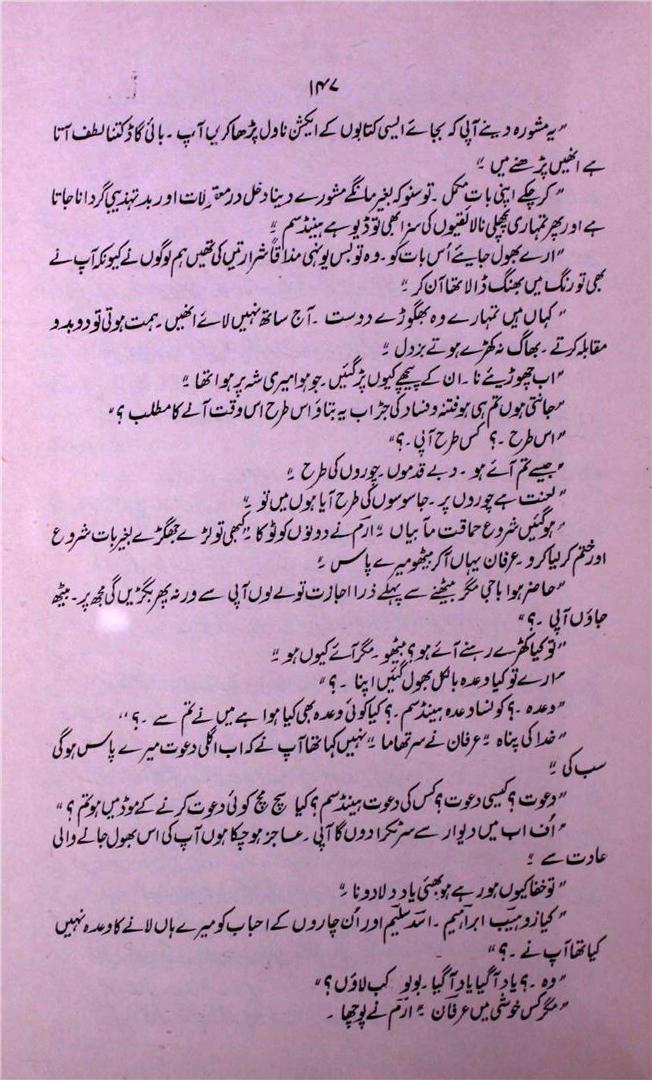 ۱۴۷
”یہ مشورہ دینے آپی کہ بجائے ایسی کتابوں کے ایکشن ناول پڑھا کریں آپ ۔ بائی گاڈ کتنا لطف آتا
ہے انھیں پڑھنے میں “
”کر چکے اپنی بات مکمل ۔ تو سنو کہ بغیر مانگے مشورے دینا دخل در معقولات اور بد تہذیبی گردانا جاتا
ہے اور پھر تمہاری پچھلی نالائقیوں کی سزا بھی تو ڈیو ہے ہینڈسم “
”ارے بھول جایئے اُس بات کو ۔ وہ تو بس یونہی مذاقاً شرارتیں کی تھیں ہم لوگوں نے کیونکہ آپ نے
بھی تو رنگ میں بھنگ ڈالا تھا آن کر “
”کہاں ہیں تمہارے وہ بھگوڑے دوست ۔ آج ساتھ نہیں لائے انھیں ۔ ہمت ہوتی تو دوبدو
مقابلہ کرتے ۔ بھاگ نہ کھڑے ہوتے بزدل “
”اب چھوڑیئے نا ۔ ان کے پیچھے کیوں پڑ گئیں ۔ جو ہوا میری شہ پر ہوا تھا “
”جانتی ہوں تم ہی ہو فتنہ و فساد کی جڑ اب یہ بتاؤ اس طرح اس وقت آنے کا مطلب ؟“
”اس طرح ۔؟ کس طرح آپی ۔؟“
”جیسے تم آئے ہو ۔ دبے قدموں ۔ چوروں کی طرح “
”لعنت ہے چوروں پر ۔ جاسوسوں کی طرح آیا ہوں میں تو “
”ہو گئیں شروع حماقت مآبیاں “ ارم نے دونوں کو ٹوکا ”کبھی تو لڑے جھگڑے بغیر بات شروع
اور ختم کر لیا کرو ۔ عرفان یہاں آ کر بیٹھو میرے پاس “
”حاضر ہوا باجی مگر بیٹھنے سے پہلے ذرا اجازت تو لے لوں آپی سے ورنہ پھر بگڑیں گی مجھ پر ۔ بیٹھ
جاؤں آپی ۔؟“
”تو کیا کھڑے رہنے آئے ہو ؟ بیٹھو ۔ مگر آئے کیوں ہو “
”ارے تو کیا وعدہ بالکل بھول گئیں اپنا ۔؟“
”وعدہ ۔؟ کونسا وعدہ ہینڈسم ۔؟ کیا کوئی وعدہ بھی کیا ہوا ہے میں نے تم سے ۔؟“
”خدا کی پناہ “ عرفان نے سر تھاما ”نہیں کہا تھا آپ نے کہ اب اگلی دعوت میرے پاس ہو گی
سب کی “
”دعوت ؟ کیسی دعوت ؟ کس کی دعوت ہینڈسم ؟ کیا سچ مچ کوئی دعوت کرنے کے موڈ میں ہو تم ؟“
”اُف اب میں دیوار سے سر ٹکرا دوں گا آپی ۔ عاجز ہو چکا ہوں آپ کی اس بھول جانے والی
عادت سے “
”تو خفا کیوں ہو رہے ہو بھئی یاد دلا دو نا “
”کیا زوہیب ابراہیم ۔ اسد سلیم اور اُن چاروں کے احباب کو میرے ہاں لانے کا وعدہ نہیں
کیا تھا آپ نے ۔؟“
”وہ ۔؟ یاد آ گیا یاد آ گیا ۔ بولو کب لاؤں ؟“
”مگر کس خوشی میں عرفان “ ارم نے پوچھا ۔